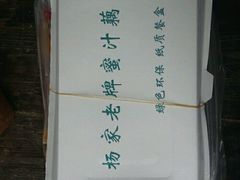 杨家老牌蜜汁藕
绿色环保 纸质餐盒